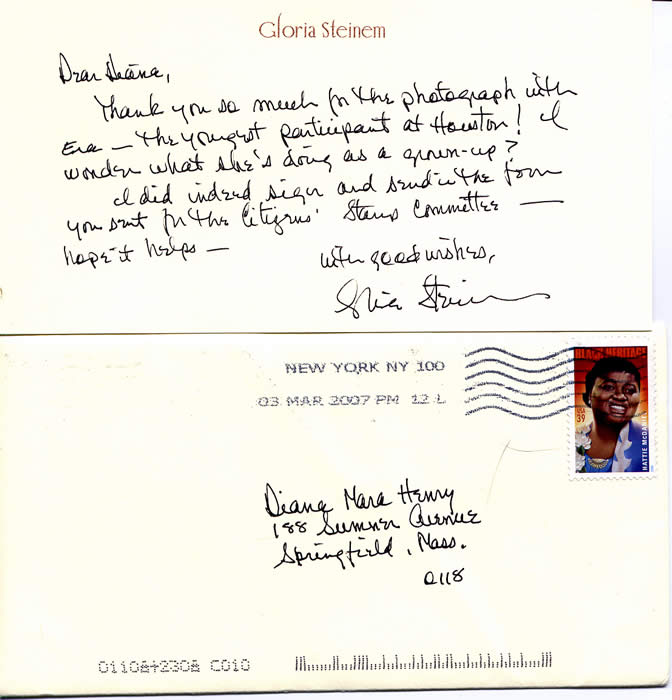 Gloria Steinem
Dear Diana,
Thank you so much for the photograph with
Eva — the youngest participant at Houston! I
wonder what she's doing as a grown-up?
I did indeed sign and send in the form
you sent for the Citizens' Stamp Committee —
hope it helps —
with good wishes,
Gloria Steinem
NEW YORK NY 100
03 MAR 2007 PM 12 L
BLACK HERITAGE
USA
39
HATTIE McDANIEL
Diana Mara Henry
188 Summer Avenue
Springfield, Mass.
0118
01108+2308 C010